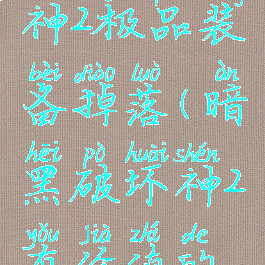 神2极品装
bèi diào luò àn
备掉落(暗
hēi pò huài shén
黑破坏神2
yǒu jià zhí de
有价值的